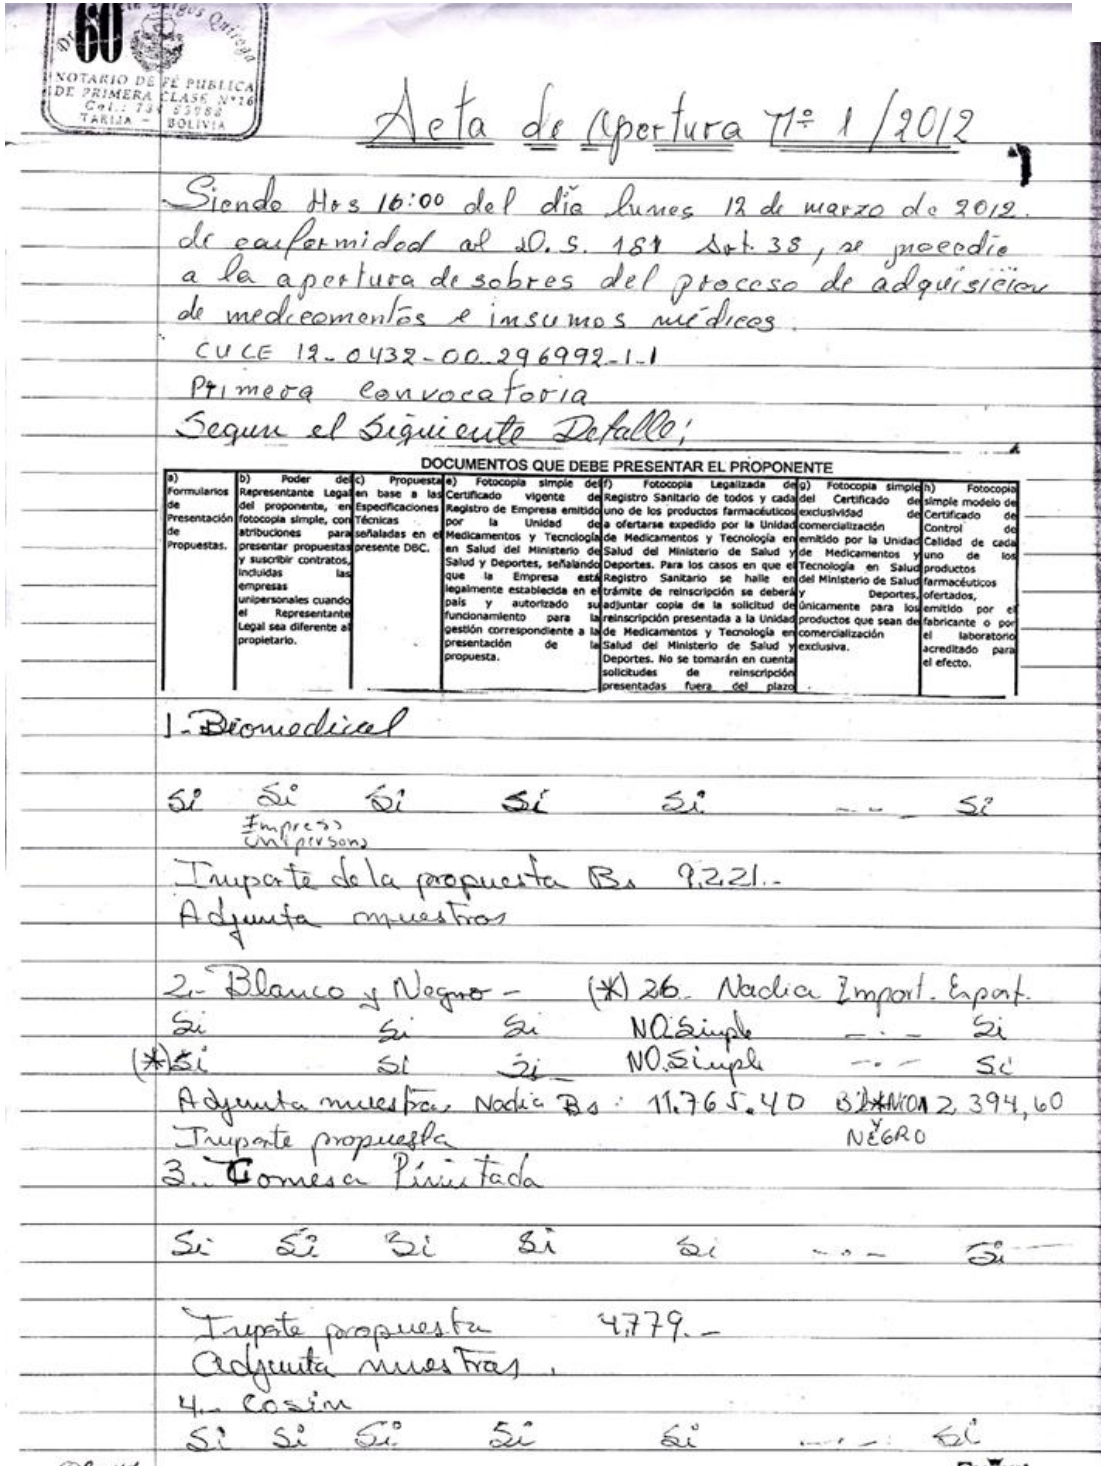 60
NOTARIO DE FÉ PUBLICA
DE PRIMERA CLASE Nº16
TARIJA - BOLIVIA
Acta de Apertura Nº 1/2012
Siendo Hrs 16:00 del día lunes 12 de marzo de 2012.
de conformidad al D.S. 181 Art. 38, se procedio
a la apertura de sobres del proceso de adquisicion
de medicamentos e insumos médicos.
CUCE 12-0432-00-296992-1-1
Primera Convocatoria
Segun el Siguiente Detalle;
DOCUMENTOS QUE DEBE PRESENTAR EL PROPONENTE
a) Formularios de Presentación de Propuestas.
b) Poder del Representante Legal del proponente, en fotocopia simple, con atribuciones para presentar propuestas y suscribir contratos, incluidas las empresas unipersonales cuando el Representante Legal sea diferente al propietario.
c) Propuesta en base a las Especificaciones Técnicas señaladas en el presente DBC.
e) Fotocopia simple del Certificado vigente de Registro de Empresa emitido por la Unidad de Medicamentos y Tecnología en Salud del Ministerio de Salud y Deportes, señalando que la Empresa está legalmente establecida en el país y autorizado su funcionamiento para la gestión correspondiente a la presentación de la propuesta.
f) Fotocopia Legalizada de Registro Sanitario de todos y cada uno de los productos farmacéuticos a ofertarse expedido por la Unidad de Medicamentos y Tecnología en Salud del Ministerio de Salud y Deportes. Para los casos en que el Registro Sanitario se halle en trámite de reinscripción se deberá adjuntar copia de la solicitud de reinscripción presentada a la Unidad de Medicamentos y Tecnología en Salud del Ministerio de Salud y Deportes. No se tomarán en cuenta solicitudes de reinscripción presentadas fuera del plazo
g) Fotocopia simple del Certificado de exclusividad de comercialización emitido por la Unidad de Medicamentos y Tecnología en Salud del Ministerio de Salud y Deportes, únicamente para los productos que sean de comercialización exclusiva.
h) Fotocopia simple modelo de Certificado de Control de Calidad de cada uno de los productos farmacéuticos ofertados, emitido por el fabricante o por el laboratorio acreditado para el efecto.
1.- Biomedical
Si Si Si Si Si - - - Si
Empresa
Unipersonal
Importe de la propuesta Bs 9.221.-
Adjunta muestras
2.- Blanco y Negro - (*) 26. Nadia Import. Export.
Si Si Si NO.Simple - . - Si
(*) Si Si Si NO.Simple - . - Si
Adjunta muestras Nadia Bs: 11.765.40 BLANCO Y NEGRO 2,394,60
Importe propuesta
3.- Comesa Limitada
Si Si Si Si Si - . - Si
Importe propuesta 4,779.-
Adjunta muestras.
4.- Cosin
Si Si Si Si Si - . - Si